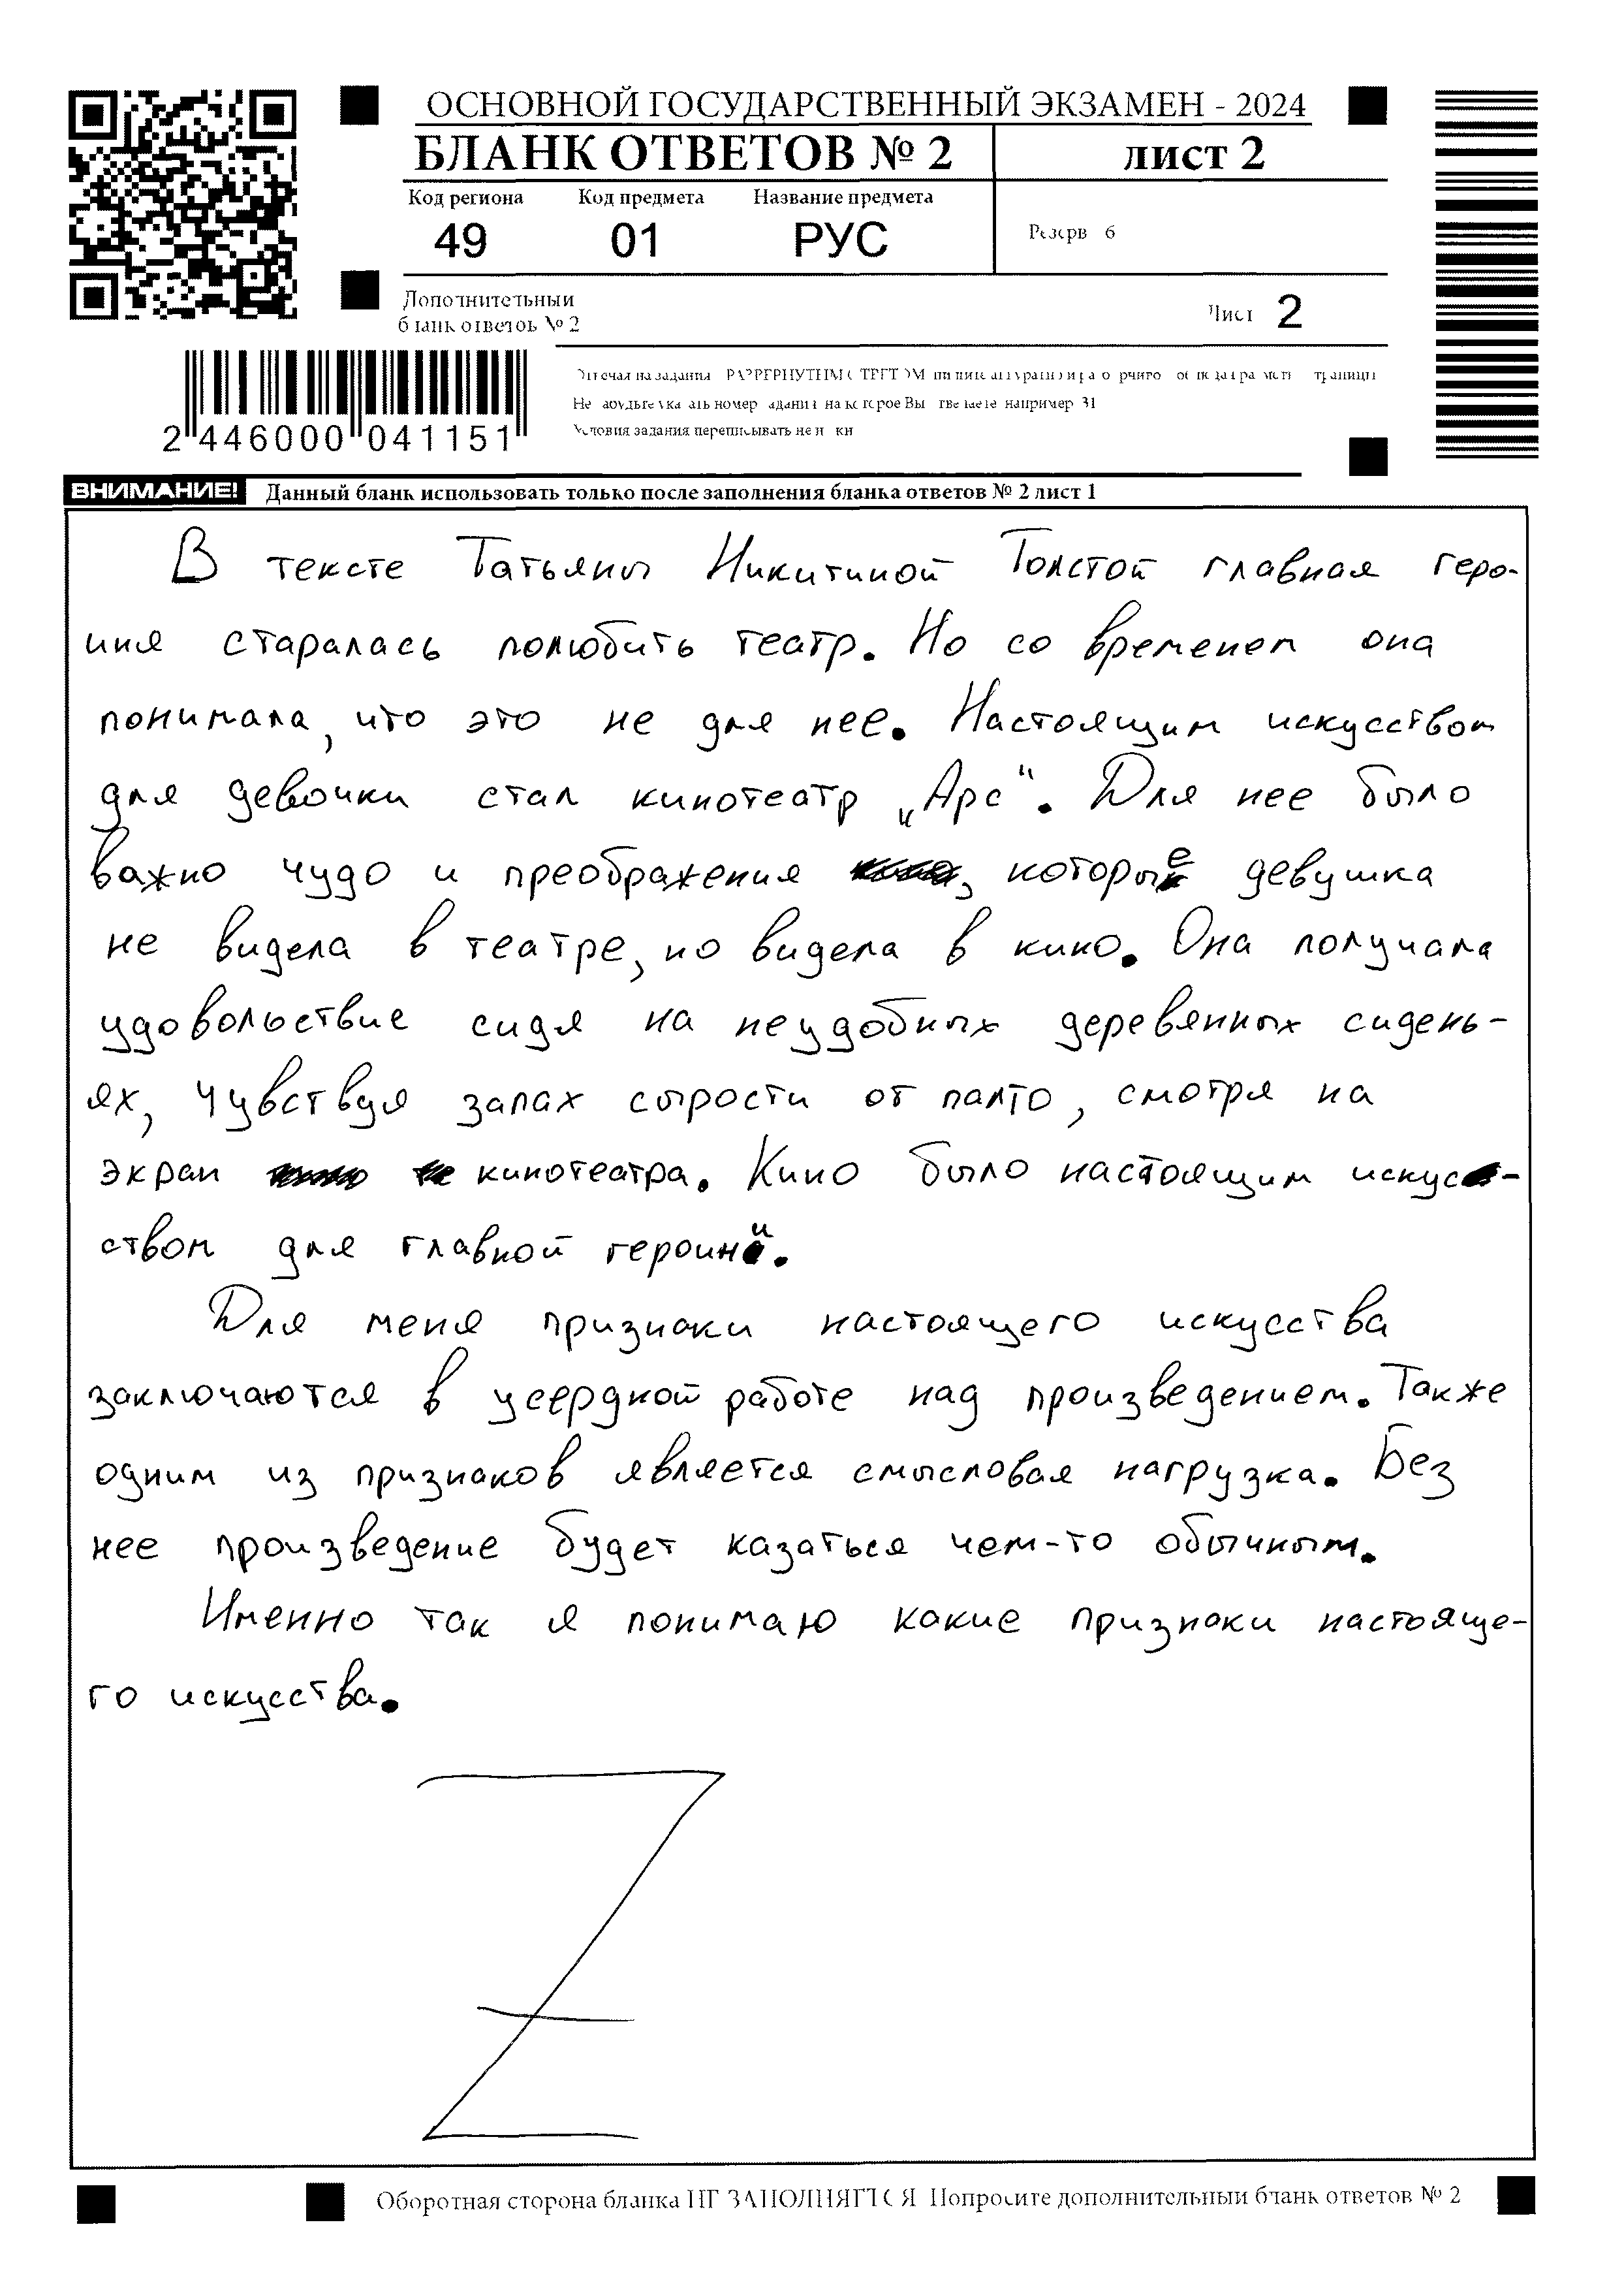 ОСНОВНОЙ ГОСУДАРСТВЕННЫЙ ЭКЗАМЕН - 2024
БЛАНК ОТВЕТОВ № 2 лист 2
Код региона Код предмета Название предмета
49 01 РУС
Резерв 6
Дополнительный
бланк ответов № 2
Лист 2
Условия задания переписывать не
2 446000 041151
ВНИМАНИЕ! Данный бланк использовать только после заполнения бланка ответов № 2 лист 1
В тексте Татьяны Никитиной Толстой главная геро-
иня старалась полюбить театр. Но со временем она
понимала, что это не для нее. Настоящим искусством
для девочки стал кинотеатр „Арс“. Для нее было
важно чудо и преображения , которые девушка
не видела в театре, но видела в кино. Она получала
удовольствие сидя на неудобных деревянных сидень-
ях, чувствуя запах сырости от палто, смотря на
экран кинотеатра. Кино было настоящим искус-
ством для главной героини.
Для меня признаки настоящего искусства
заключаются в усердной работе над произведением. Также
одним из признаков является смысловая нагрузка. Без
нее произведение будет казаться чем-то обычным.
Именно так я понимаю какие признаки настояще-
го искусства.
Оборотная сторона бланка НЕ ЗАПОЛНЯЕТСЯ Попросите дополнительный бланк ответов № 2